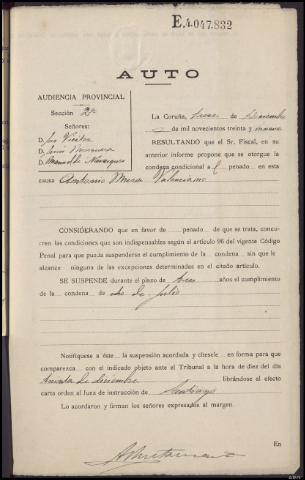 E.4.047.832
AUTO
AUDIENCIA PROVINCIAL
Sección 2ª
Señores:
D. José
D.
D. Manuel de
La Coruña, de Diciembre
de mil novecientos treinta y nueve
RESULTANDO que el Sr. Fiscal, en su
anterior informe propone que se otorgue la
condena condicional a l penado en esta
causa Antonio Valenciano
CONSIDERANDO que en favor de penado de que se trata, concu-
rren las condiciones que son indispensables según el artículo 96 del vigente Código
Penal para que pueda suspenderse el cumplimiento de la condena sin que le
alcance ninguna de las excepciones determinadas en el citado artículo.
SE SUSPENDE durante el plazo de tres años el cumplimiento
de la condena de
Notifíquese a éste la suspensión acordada y cítesele en forma para que
comparezca con el indicado objeto ante el Tribunal a la hora de diez del día
treinta de diciembre librándose al efecto
carta orden al Juez de instrucción de Santiago
Lo acordaron y firman los señores expresados al margen.
En